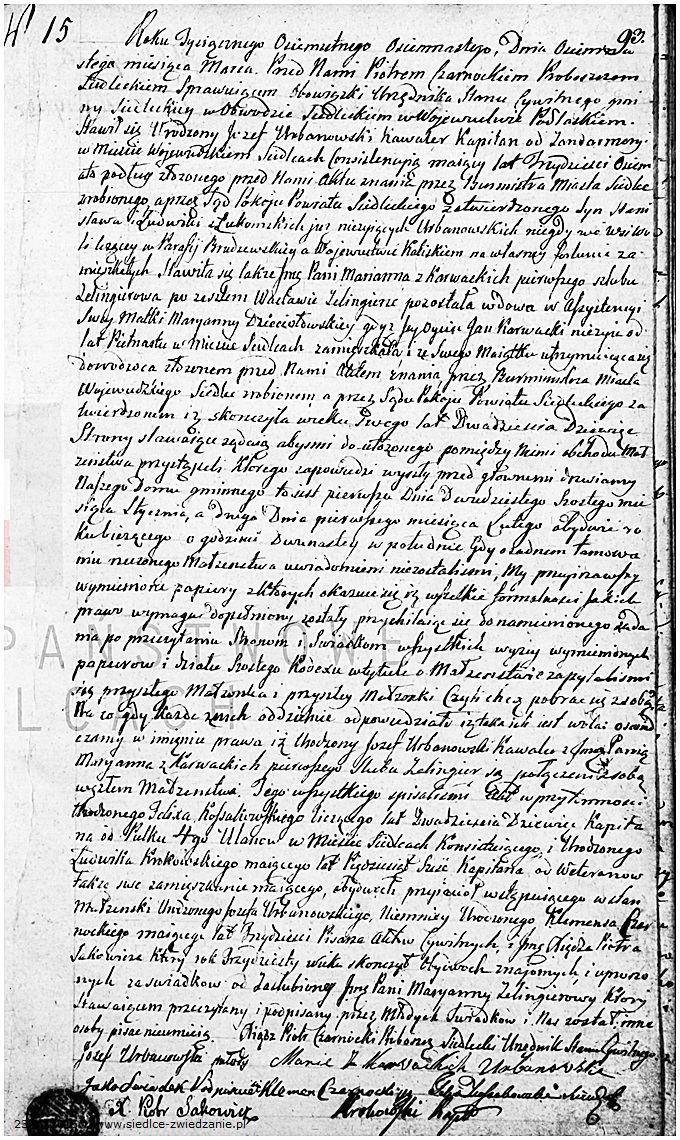 N 15
93.
Roku Tysiącznego Osiemsetnego Osiemnastego, Dnia Osiemna
stego miesiąca Marca. Przed Nami Piotrem Czarnockiem Proboszczem
Siedleckiem Sprawuiącem Obowiązki Urzędnika Stanu Cywilnego gmi
ny Siedleckiey w Obwodzie Siedleckiem w Wojewutwie Podlaskiem.
Stawił się Urodzony Jozef Urbanowski Kawaler Kapitan od Żandarmery
w Miescie Wojewudzkiem Siedlcach Consistenyią maiący lat Trzydziesci Osiem
podług złożonego przed Nami Aktu znania przez Burmistra Miasta Siedlec
zrobionego a przez Sąd Pokoju Powiatu Siedleckiego zatwierdzonego Syn Stani
sława i Ludwiki z Łukomskich juz nieżyiących Urbanowskich niegdy we wsi
leżącey w Parafij Brudzewskiey a Wojewutwie Kaliskiem na własney fortunie za
mieszkałych Stawiła się także Jmć Pani Marianna z Karwackich pierwszego szlubu
Zelingierowa po zeszłem Wacławie Zelingierze pozostała wdowa w Assystencyi
Swey Matki Maryanny Dzieciołowskiey gdyz Jey Oyciec Jan Karwacki nieżyie od
lat Pietnastu w Miescie Siedlcach zamieszkała i ze Swego Maiątku utrzymuiąca się
dowodząca złożonem przed Nami Aktem znania przez Burmistrza Miasta
Wojewudzkiego Siedlec zrobionem a przez Sąd Pokoju Powiatu Siedleckiego za
twierdzonem iż skończyła wieku Swego lat Dwadziescia Dziewięć
Strony stawaiące żądaią abysmy do ułożonego pomiędzy Niemi obchodu Mał
żenstwa przystąpili ktorego zapowiedzi wyszły przed głownemi drzwiami
Naszego Domu gminnego to iest pierwsza Dnia Dwudziestego Szostego mie
siąca Stycznia, a druga Dnia pierwszego miesiąca Lutego obydwie ro
ku bieżącego o godzinie Dwunastey w południe Gdy o żadnem tamowa
niu rzeczonego Małżenstwa uwiadomieni niezostalismy, My przeirzawszy
wymienione papiery z ktorych okazuie się iż wszelkie formalnosci jakich
prawo wymaga dopełnione zostały przychilaiąc się do namienionego żąda
nia po przeczytaniu Stronom i Swiadkom wszystkich wyżey wymienionych
papierow i działu Szostego Kodexu w tytule o Małżenstwie zapytalismy
się przyszłego Małżonka i przyszłey Małżonki Czyli chcą pobrac się z sobą
Na co gdy każde z nich oddzielnie odpowiedziało iż taka ich iest wola: oswiad
czamy w imieniu prawa iż Urodzony Jozef Urbanowski Kawaler z Jmć Panią
Maryanną z Karwackich pierwszego Szlubu Zelingier są połączeni z sobą
węzłem Małżenstwa. Tego wszystkiego spisalismy Akt w przytomnosci
Urodzonego Felixa Kossakowskiego liczącego lat Dwadziescia Dziewięc Kapita
na od Pułku 4go Ułanow w Miescie Siedlcach Konsistuiącego, i Urodzonego
Ludwika Krokowskiego maiącego lat Pięcdziesiąt Szesć Kapitana od Weteranow
także swe zamieszkanie maiącego, obydwuch przyiaciół wstępuiącego w stan
Małżenski Urodzonego Jozefa Urbanowskiego, Niemniey Urodzonego Klemensa Czar
nockiego maiącego lat Trzydziesci Pisarza Aktow Cywilnych, i Jmć Xiędza Piotra
Sakowicza ktory rok Trzydziesty wieku skończył Obywoch znajomych i uproszo
nych za swiadkow od Zaslubioney Jmć Pani Maryanny Zelingierowy Ktory
Stawaiącem przeczytany i podpisany przez Młodych Swiadkow i Nas został, inne
osoby pisac nieumieią. Xiądz Piotr Czarnocki Pleban Siedlecki Urzednik Stanu Cywilnego.
Józef Urbanowski młody Maria z Karwackich Urbanowska
Jako Swiadek Podpisuie Klemen Czarnocki
X Piotr Sakowicz Krokowski Kapt
PAŃSTWOWE
LCACH
www.siedlce-zwiedzanie.pl